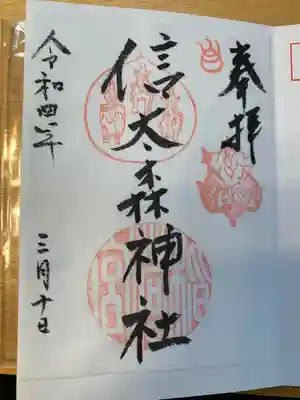 奉拝
信太森神社
令和四年
三月十日